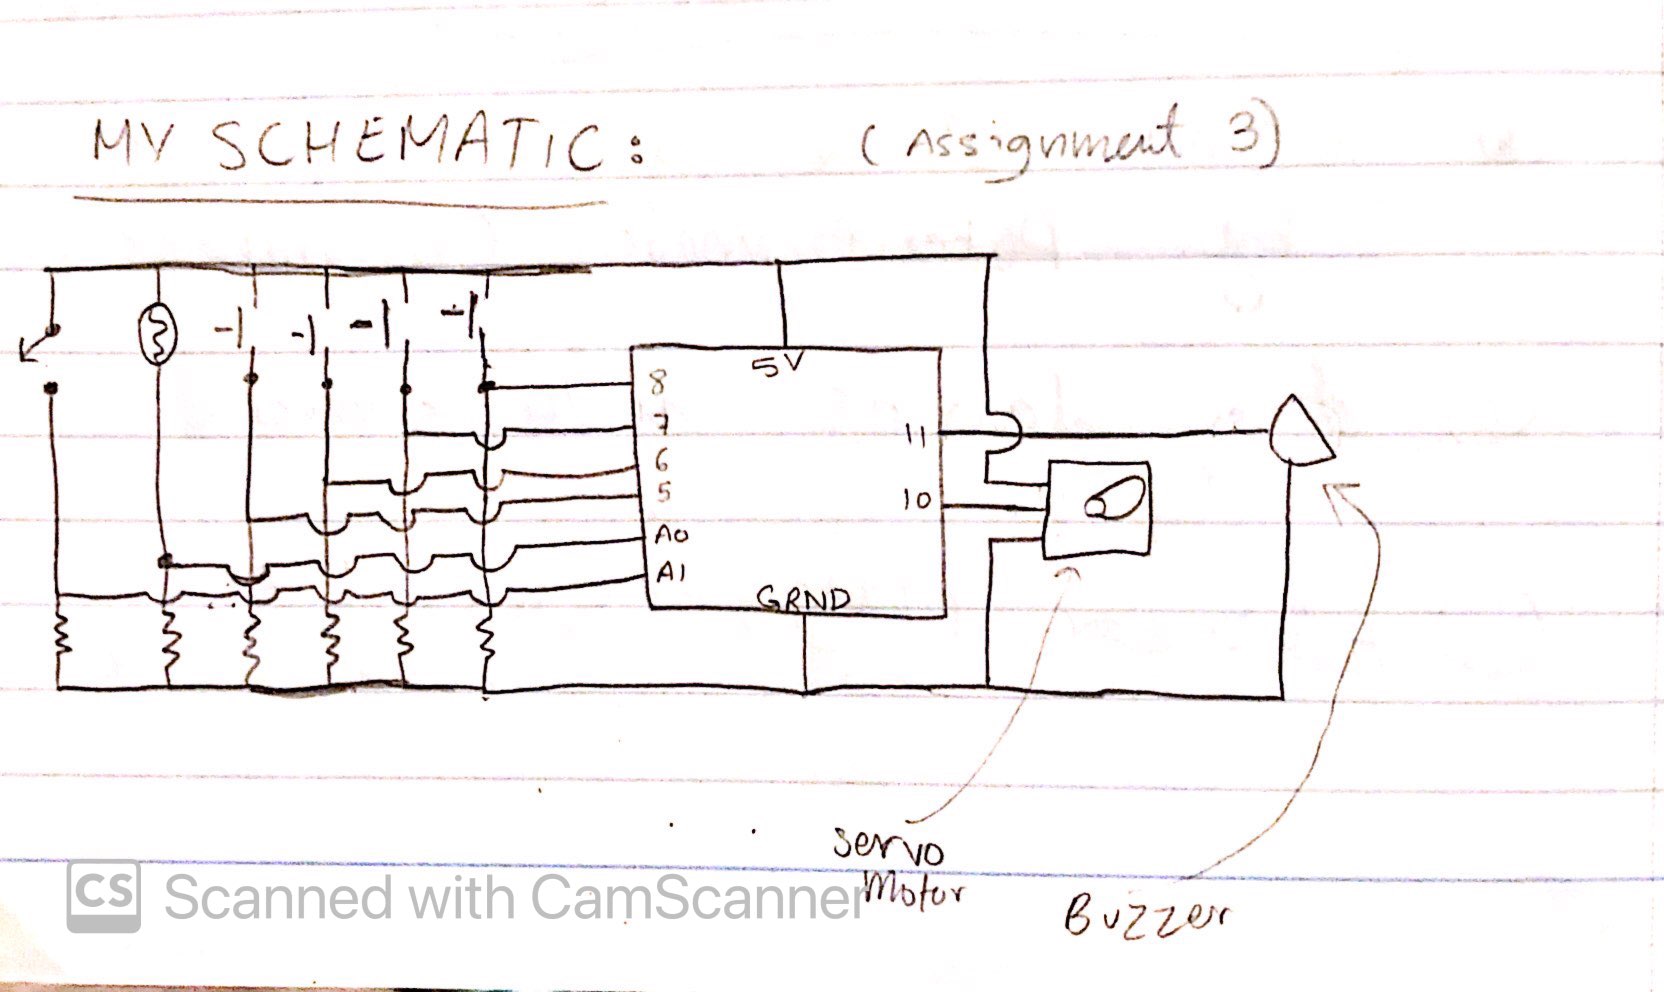 MY SCHEMATIC: (Assignment 3)
5V
8
7
6
5
A0
A1
11
10
GRND
Servo
Motor
Buzzer
CS Scanned with CamScanner